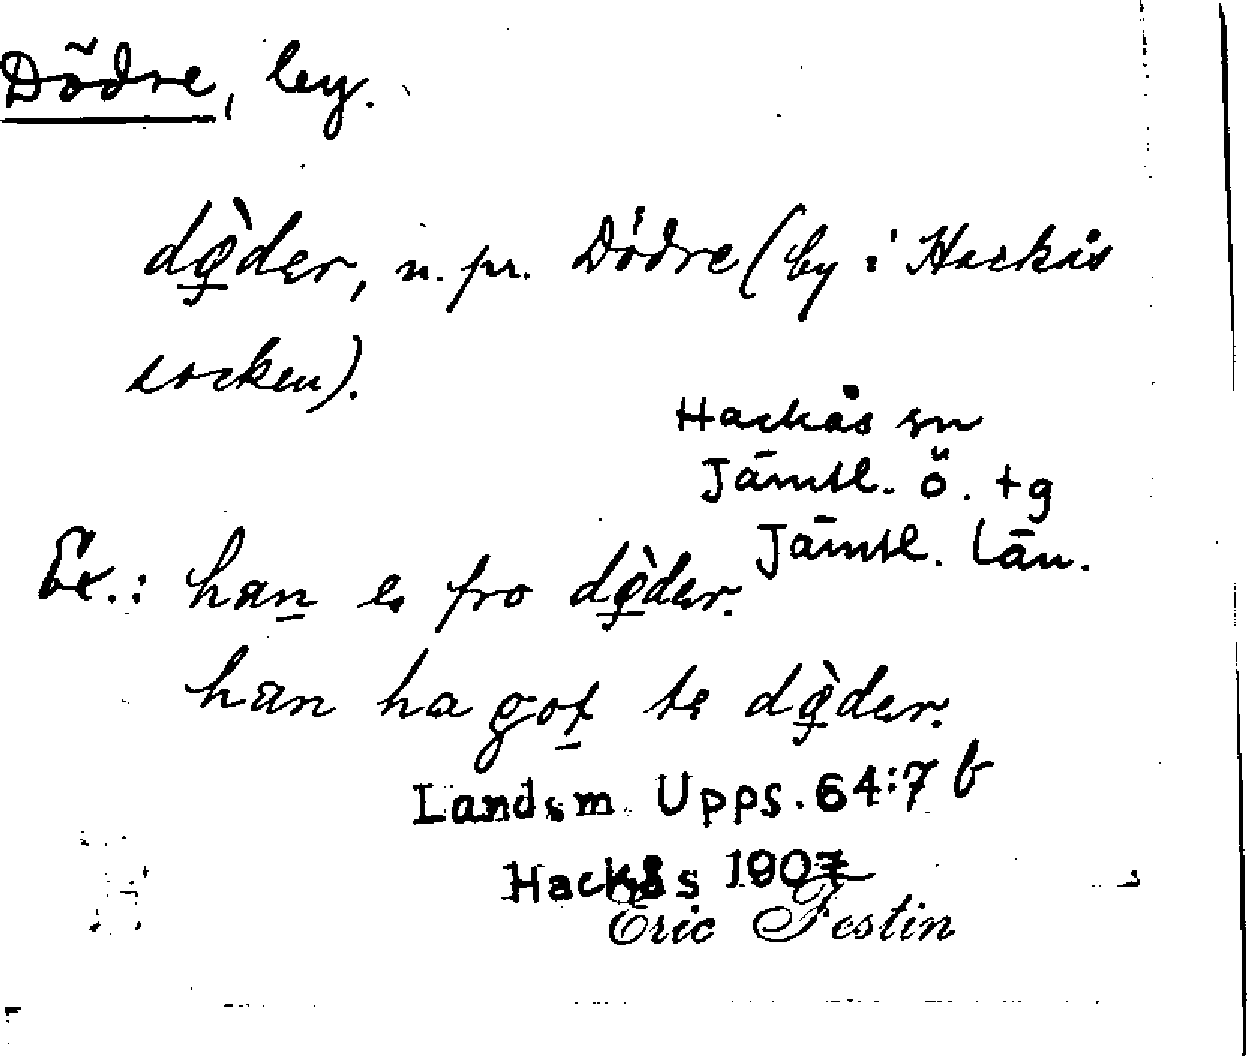 Dödre, by.
dø̀der, n. pr. Dödre (by i Hackås
socken).
Hackås sn
Jämtl. ö. tg
Jämtl. län.
Ex.: han e fro dø̀der.
han ha got te dø̀der.
Landsm. Upps. 64:7 b
Hackås 1907
Eric Festin